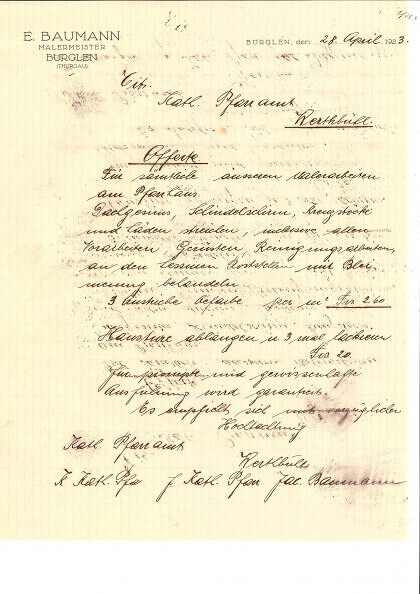 E. BAUMANN
MALERMEISTER
BÜRGLEN
(THURGAU)
BÜRGLEN, den 28. April 1923.
Tit.
Kath. Pfarramt
Werthbühl.
Offerte
Für sämtliche äusseren Malerarbeiten
am Pfarrhaus
Dachgesims, Schindelschirm, Kreuzstöcke
und Läden streichen, inclusive allen
Vorarbeiten, Reinigungsarbeiten,
an den Roststellen mit Blei-
menning behandeln
3 Anstriche per m² Frs 2.60
Haustüre ablaugen u 3 mal lackieren
Frs 20.
Für prompte und gewissenhafte
Ausführung wird garantiert.
Es empfiehlt sich mit vorzüglicher
Hochachtung
Kath. Pfarramt
Werthbühl
Kath. Pfa Kath. Pfarr Jac. Baumann